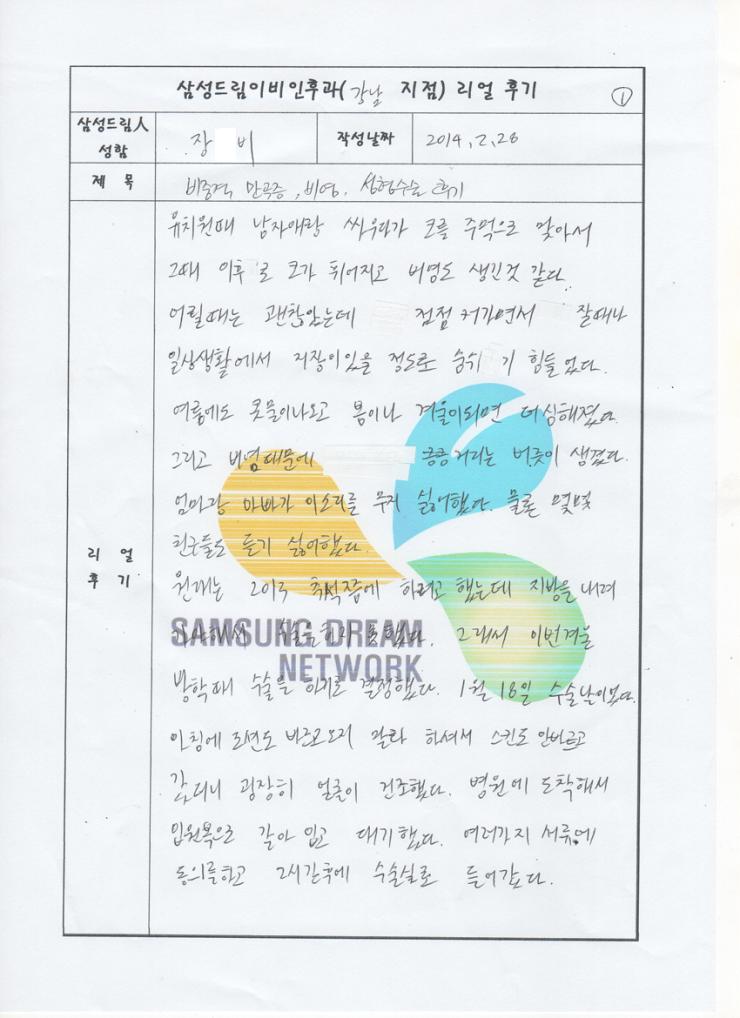 삼성드림이비인후과(강남 지점) 리얼 후기 ①
삼성드림人
성함
장 비
작성날짜
2014, 2, 28
제 목
비중격 만곡증, 비염, 성형수술 후기
리 얼
후 기
유치원때 남자애랑 싸우다가 코를 주먹으로 맞아서
그때 이후로 코가 휘어지고 비염도 생긴것 같다.
어릴때는 괜찮았는데 점점 커가면서 잘때나
일상생활에서 지장이있을 정도로 숨쉬기 힘들었다.
여름에도 콧물이나오고 봄이나 겨울이되면 더심해졌다.
그리고 비염때문에 킁킁거리는 버릇이 생겼다.
엄마랑 아빠가 이소리를 무지 싫어했다. 물론 몇몇
친구들도 듣기 싫어했다.
원래는 2013 추석쯤에 하려고 했는데 지방을 내려
수술을하지 못했다. 그래서 이번겨울
방학때 수술을 하기로 결정했다. 1월 18일 수술날이었다.
아침에 로션도 바르지 말라 하셔서 스킨도 안바르고
갔더니 굉장히 얼굴이 건조했다. 병원에 도착해서
입원복으로 갈아 입고 대기했다. 여러가지 서류에
동의를하고 2시간후에 수술실로 들어갔다.
SAMSUNG DREAM
NETWORK